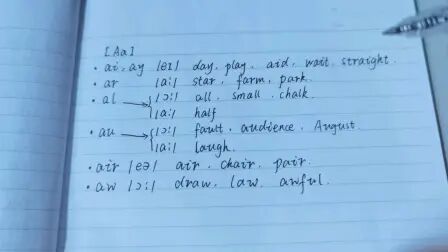 [Aa]
· ai, ay /eɪ/ day, play, aid, wait, straight.
· ar /a:/ star, farm, park.
· al → /ɔ:/ all, small, chalk.
/a:/ half
· au → /ɔ:/ fault, audience, August
/a:/ laugh.
· air /eə/ air, chair, pair.
· aw /ɔ:/ draw, law, awful.